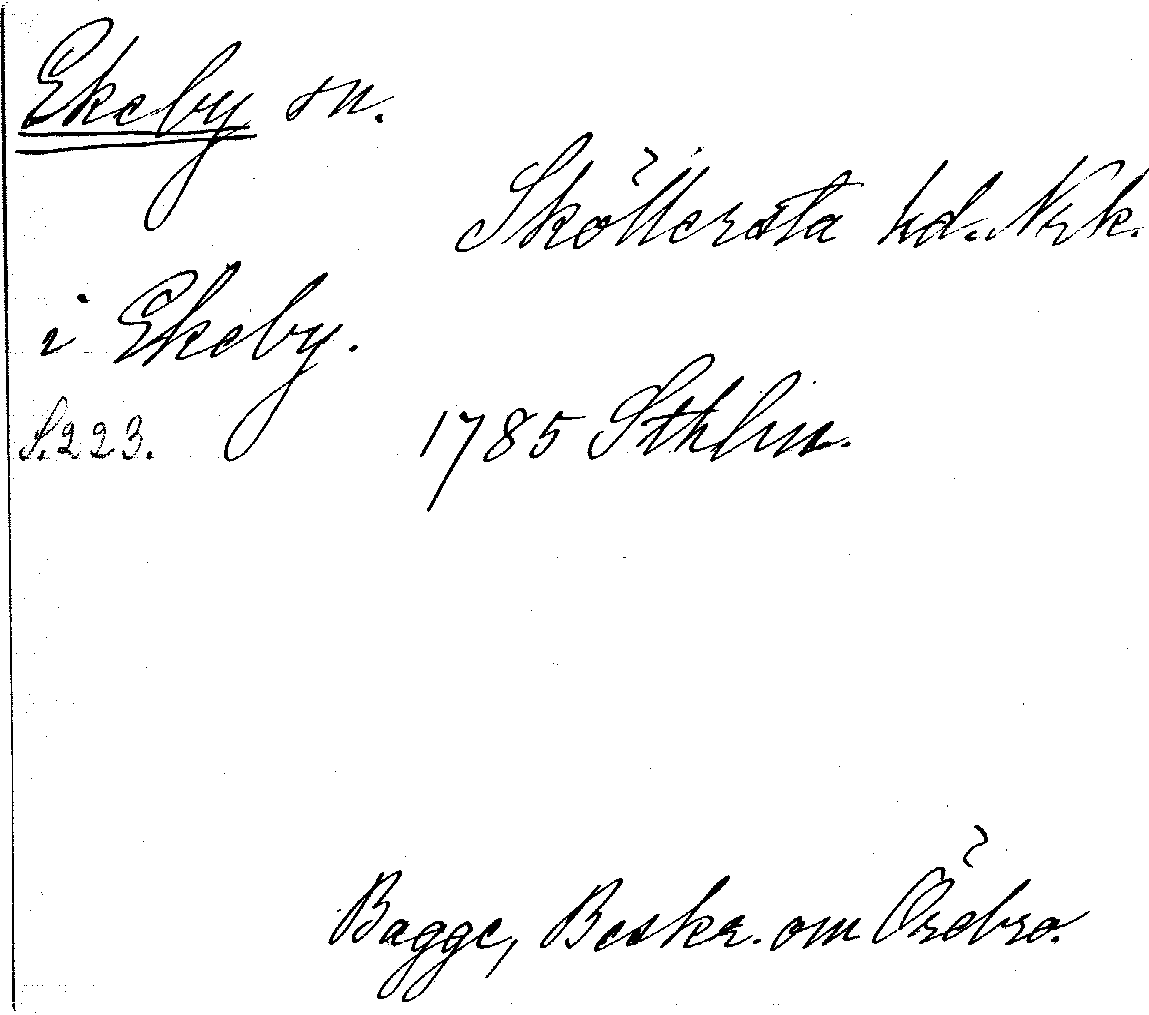 Ekeby sn.
Sköllersta hd. Nrk.
i Ekeby.
S. 223.
1785 Sthlm.
Bagge, Beskr. om Örebro.